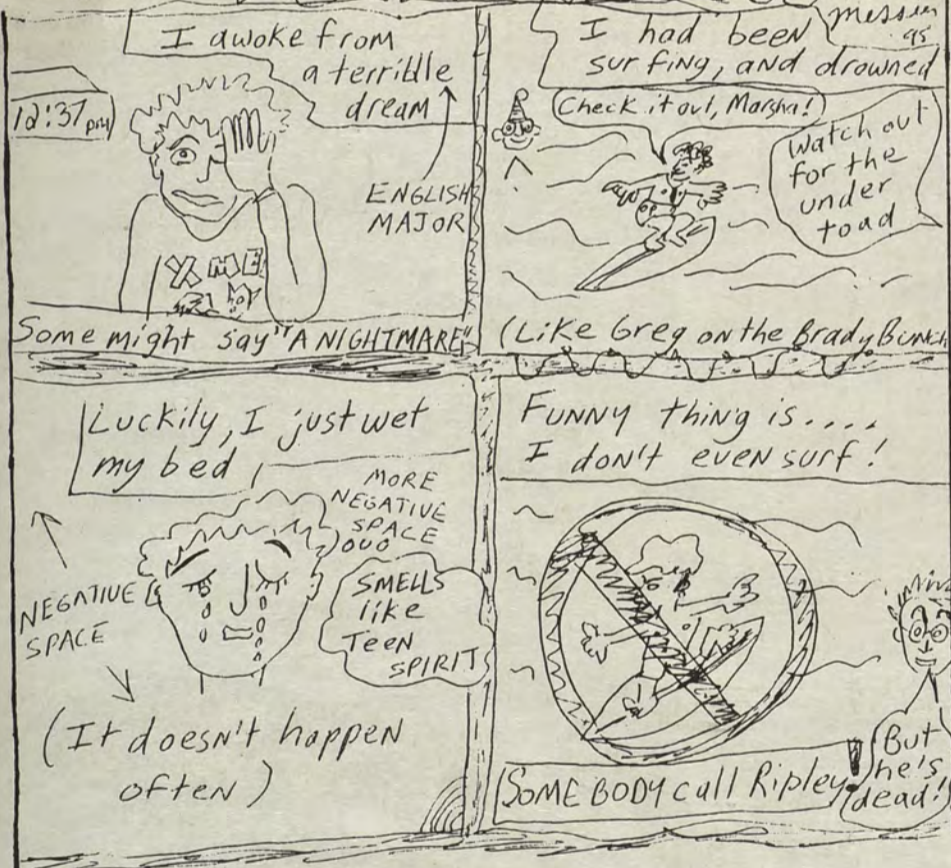 I awoke from
a terrible
dream
12:37 pm
ENGLISH
MAJOR
Y ME
Some might say "A NIGHTMARE"
messer
95
I had been
surfing, and drowned
Check it out, Marsha!
Watch out
for the
under
toad
(Like Greg on the Brady Bunch
Luckily, I just wet
my bed
MORE
NEGATIVE
SPACE
NEGATIVE
SPACE
SMELLS
like
Teen
SPIRIT
(It doesn't happen
often)
FUNNY thing is....
I don't even surf!
SOMEBODY call Ripley!
But
he's
dead!